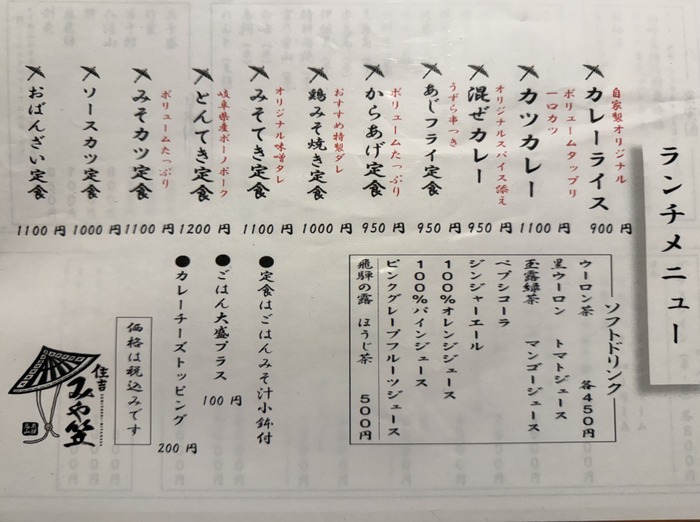 ランチメニュー
自家製オリジナル
カレーライス
900 円
ボリュームタップリ
一口カツ
カツカレー
1100 円
オリジナルスパイス添え
混ぜカレー
950 円
うずら串つき
あじフライ定食
950 円
ボリュームたっぷり
からあげ定食
950 円
おすすめ特製ダレ
鶏みそ焼き定食
1000 円
オリジナル味噌タレ
みそてき定食
1100 円
岐阜県産ボーノポーク
とんてき定食
1200 円
ボリュームたっぷり
みそカツ定食
1100 円
ソースカツ定食
1000 円
おばんざい定食
1100 円
ソフトドリンク
ウーロン茶 各450円
黒ウーロン トマトジュース
玉露緑茶 マンゴージュース
ペプシコーラ
ジンジャーエール
100%オレンジジュース
100%パインジュース
ピンクグレープフルーツジュース
飛騨の露 ほうじ茶 500円
●定食はごはんみそ汁小鉢付
●ごはん大盛プラス
100 円
●カレーチーズトッピング
200 円
価格は税込みです
住吉
みや笠